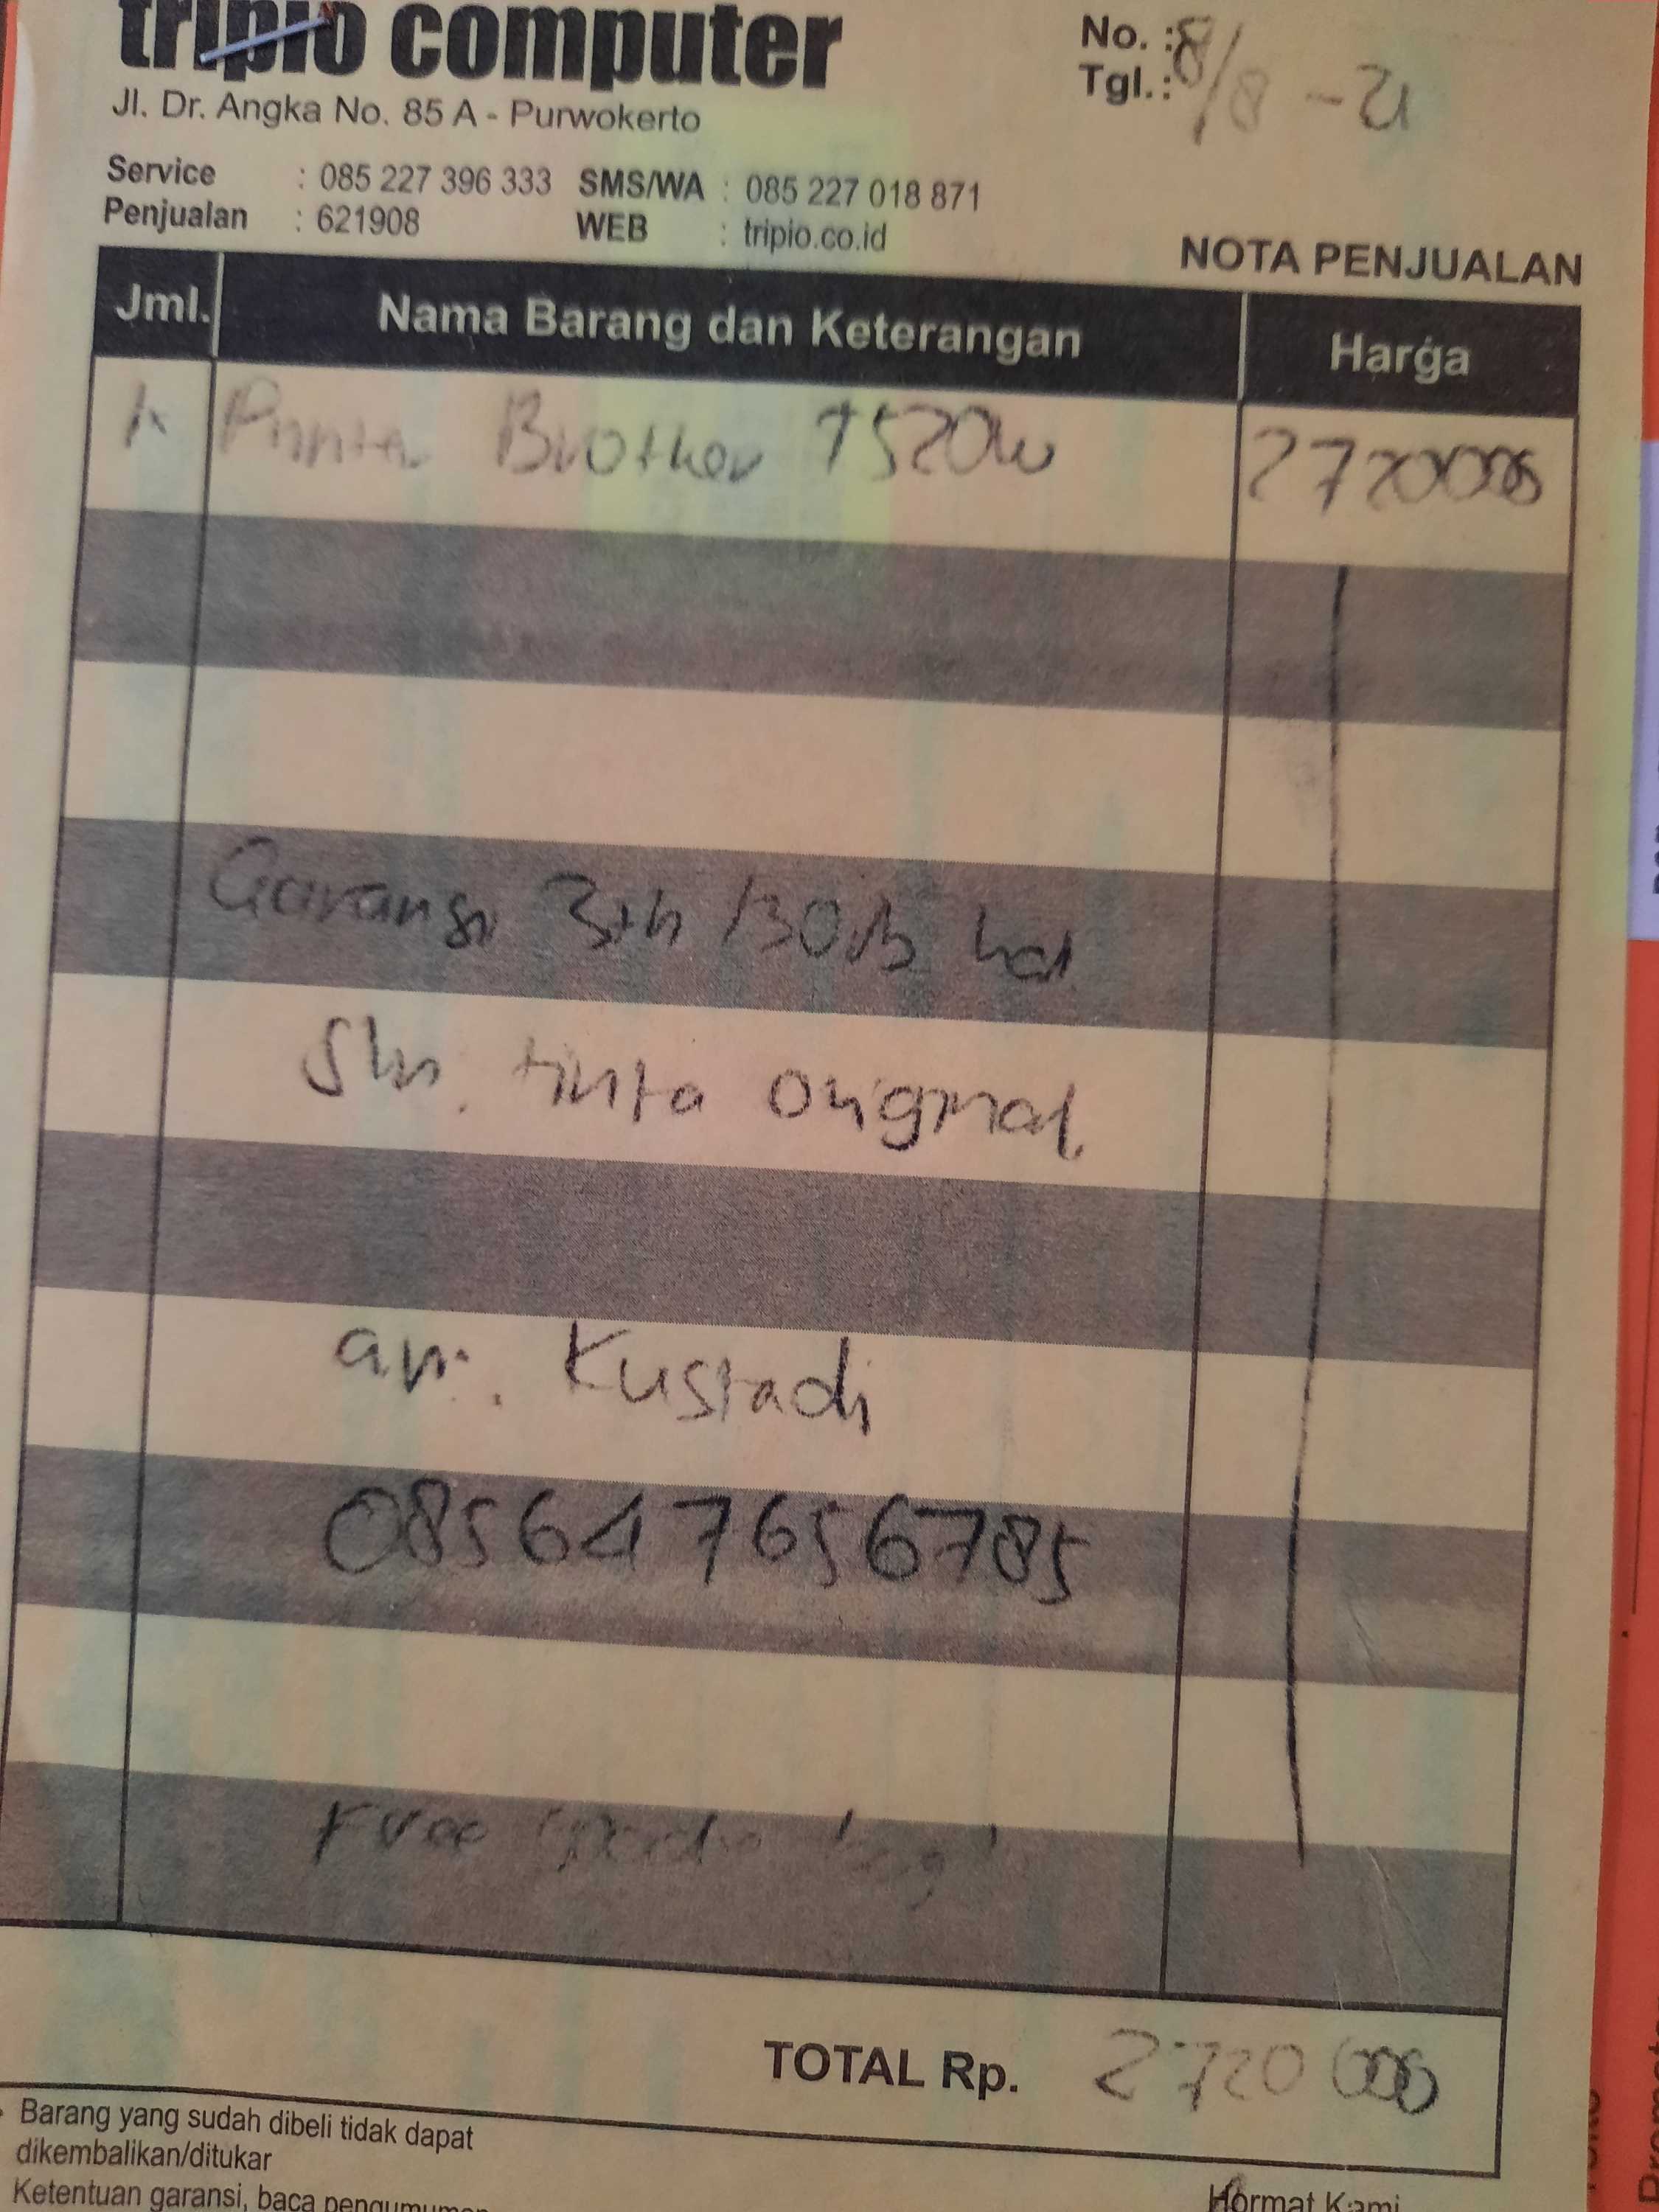 tripio computer
Jl. Dr. Angka No. 85 A - Purwokerto
No. :
Tgl.: 8/8 - 21
Service : 085 227 396 333 SMS/WA : 085 227 018 871
Penjualan : 621908 WEB : tripio.co.id
NOTA PENJUALAN
Jml. Nama Barang dan Keterangan Harga
1 Printer Brother T520w 2720000
Garansi 3th /30rb hal
Sln. tinta original.
an. Kustadi
085647656785
Free
TOTAL Rp. 2720 000
Barang yang sudah dibeli tidak dapat
dikembalikan/ditukar
Ketentuan garansi, baca
Hormat Kami